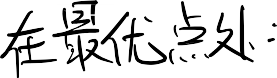 在最优点处：